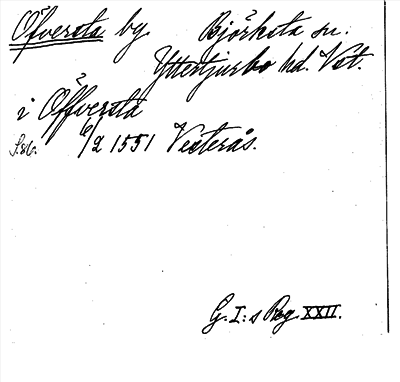 Öfversta by. Björksta sn.
Yttertjurbo hd. Vst.
i Öffversta
6/2 1551 Vesterås.
G. I:s Reg. XXII.